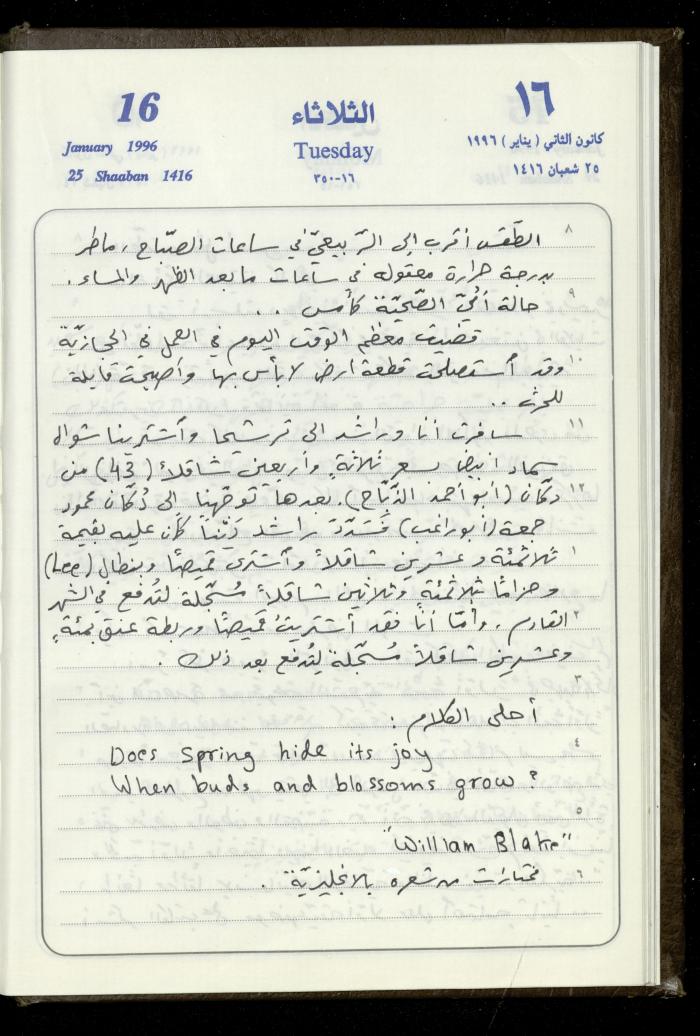 16
January 1996
25 Shaaban 1416
الثلاثاء
Tuesday
١٦-٣٥٠
١٦
كانون الثاني ( يناير ) ١٩٩٦
٢٥ شعبان ١٤١٦
٨ الطّقس أقرب إلى الرّبيعيّ في ساعات الصّباح، ماطر
بدرجة حرارة معقوله في ساعات ما بعد الظهر والمساء.
٩ حالة أُمّي الصّحيّة كأمس ...
قضيت معظم الوقت اليوم في العمل في الحجازيّة
١٠ وقد أستصلحت قطعة أرض لا بأس بها وأصبحت قابلة
للحرث ..
١١ سافرت أنا وراشد الى ترشيحا وأشترينا شوال
سماد أبيض بسعر ثلاثةٍ وأربعين شاقلاً (43) من
١٢ دكّان (أبو أحمد الدّبّاح). بعدها توجّهنا إلى دُكّان محمود
جمعة (أبو راغب) فسَدّدَ راشد دَيْناً كان عليه بقيمة
١ ثلاثمئة وعشرين شاقلاً وأشترى قميصًا وبنطال (Lee)
وحزامًا بثلاثمئةٍ وثلاثين شاقلاً مُسجّلة لتُدفع في الشهر
٢ القادم. وأمّا أنا فقد أشتريتُ قميصًا وربطة عنق بمئةٍ
وعشرين شاقلاً مُسجّلة لِتُدفع بعد ذلك.
٣
أحلى الكلام :
٤
Does spring hide its joy
When buds and blossoms grow?
٥
"William Blake"
٦ مختارات من شعره بالإنجليزيّة.